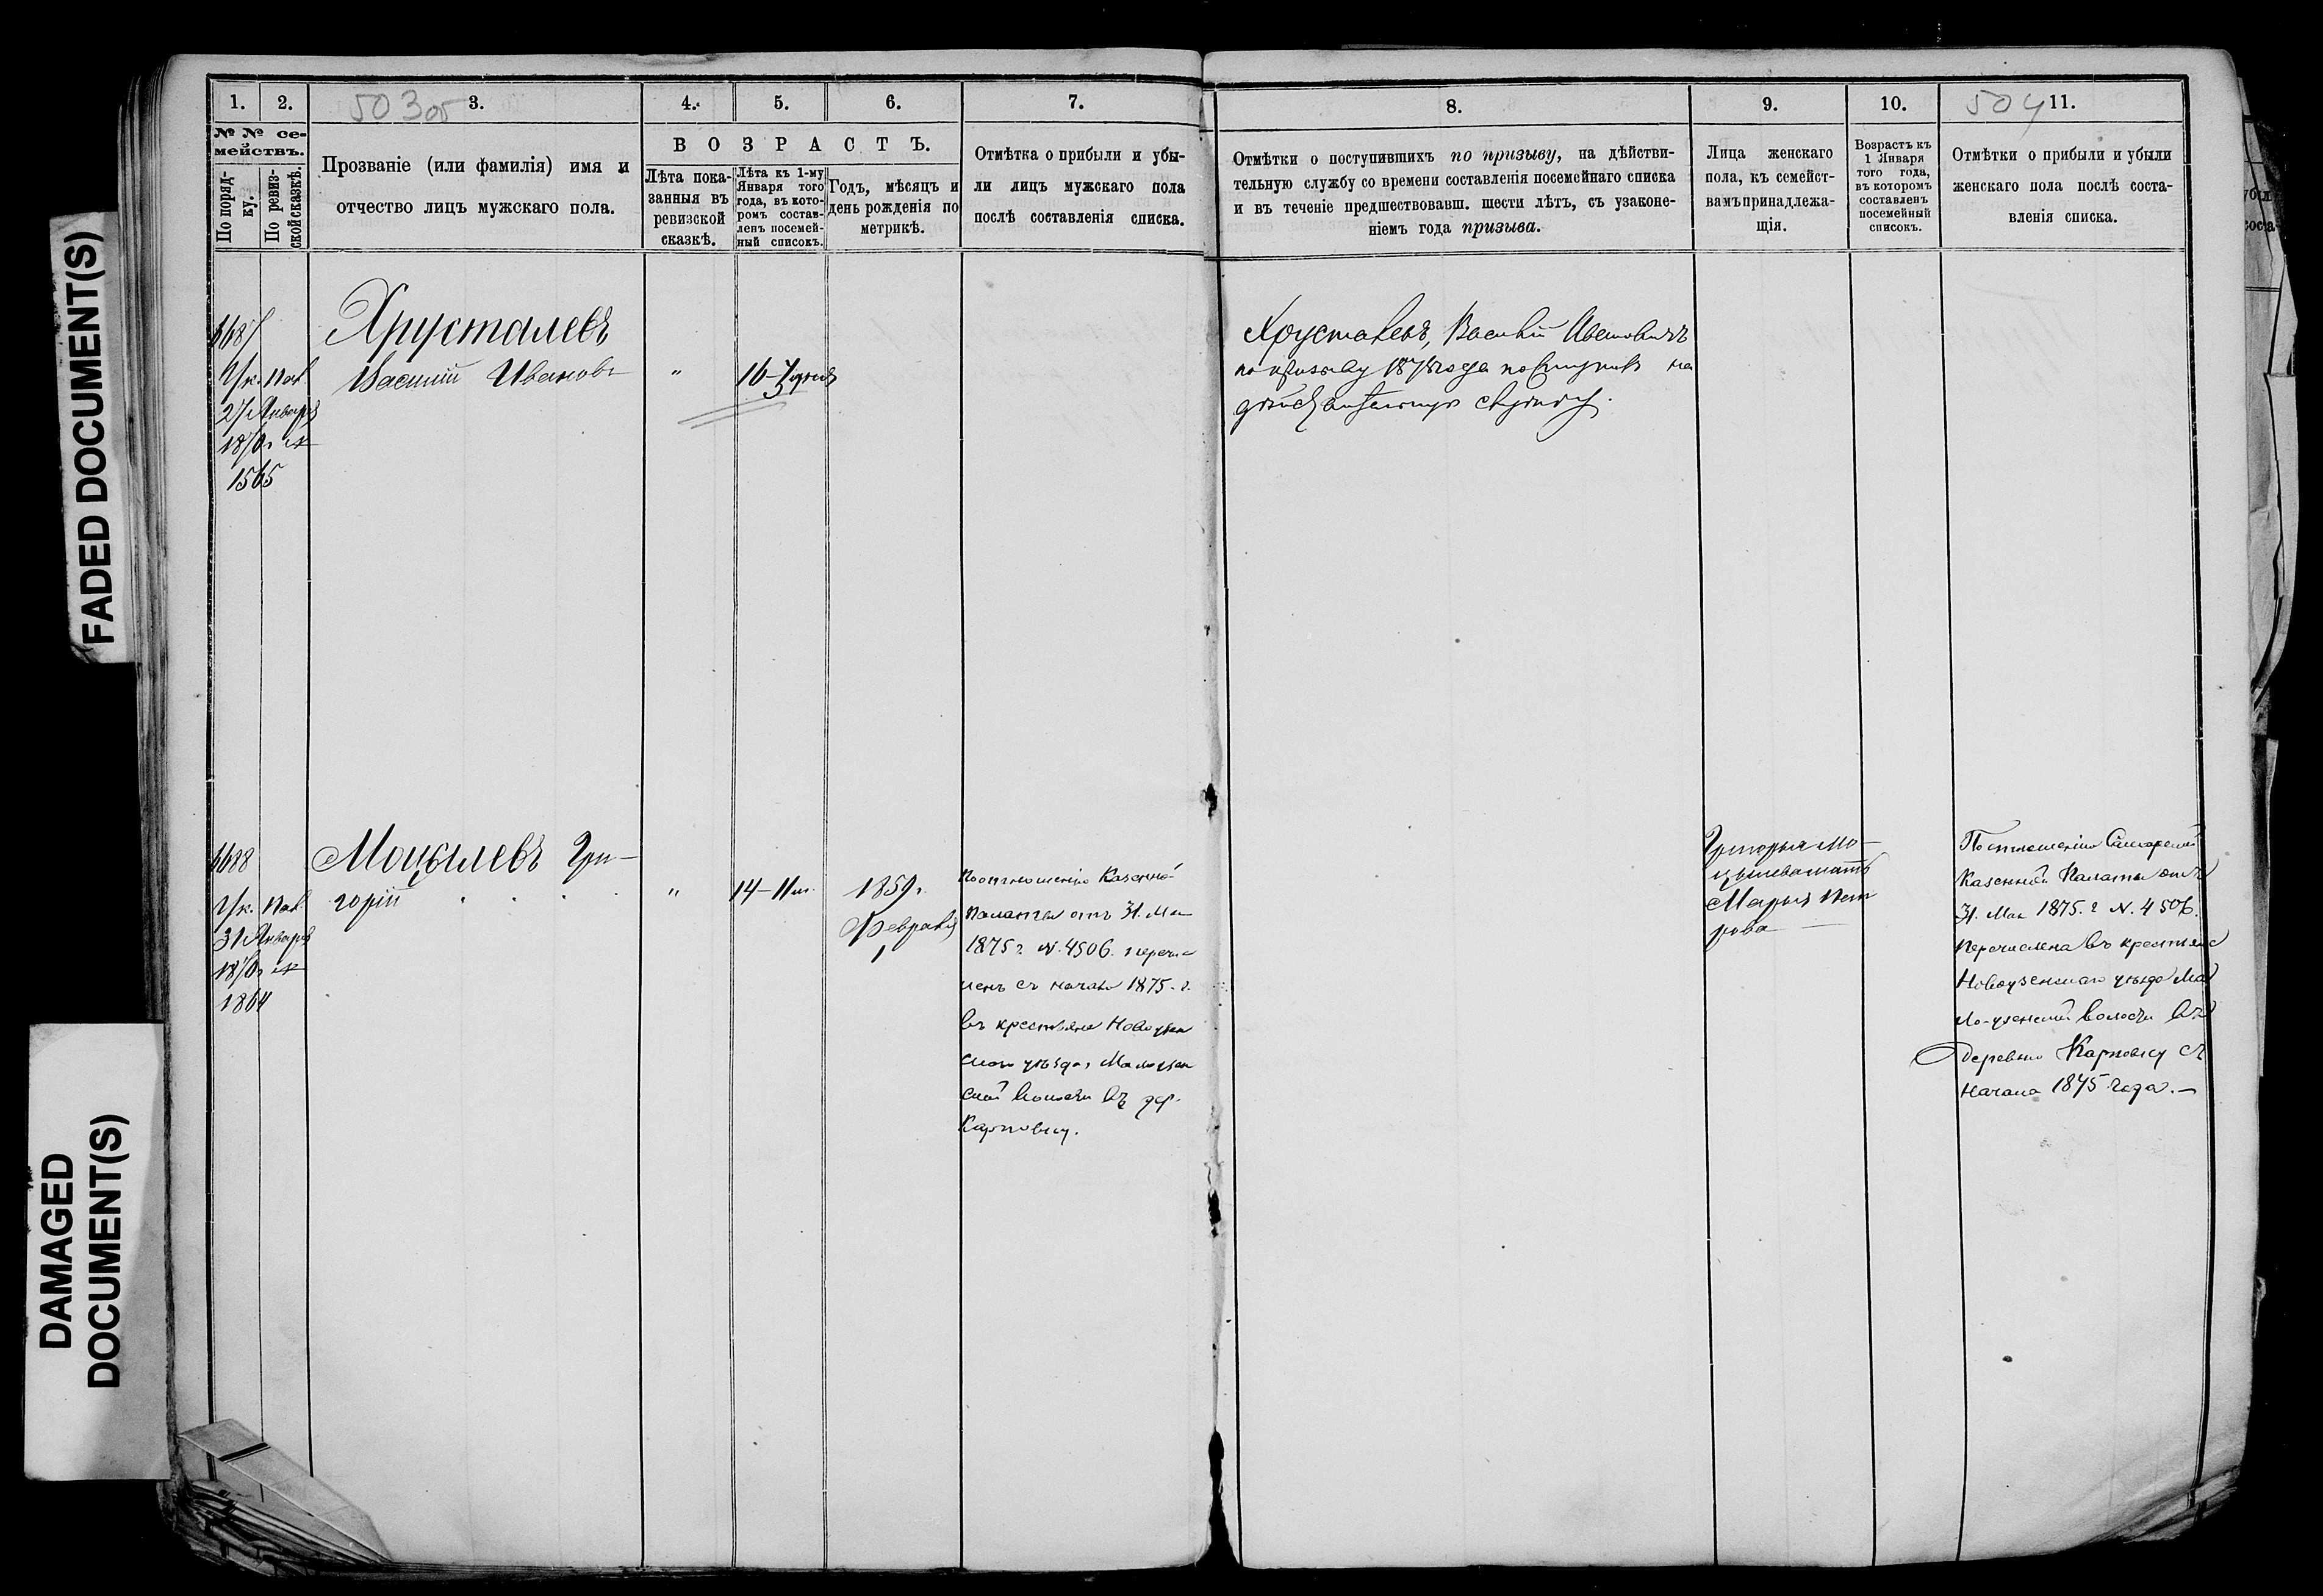 FADED DOCUMENT(S)
DAMAGED
DOCUMENT(S)
1.
2.
3.
4.
5.
6.
7.
503 об
№ № се-
мействъ.
По поряд-
ку.
По ревиз-
ской сказкѣ.
Прозваніе (или фамилія) имя и
отчество лицъ мужскаго пола.
ВОЗРАСТЪ.
Лѣта пока-
занныя въ
ревизской
сказкѣ.
Лѣта къ 1-му
Января того
года, въ кото-
ромъ состав-
ленъ посемей-
ный списокъ.
Годъ, мѣсяцъ и
день рожденія по
метрикѣ.
Отмѣтка о прибыли и убы-
ли лицъ мужскаго пола
послѣ составленія списка.
Хрусталевъ
Василій Ивановъ
"
27 Января
1565
Моцылевъ Гри-
горій
"
14 - 11 м.
1859 г.
Февраля
1
31 Января
1864
По отношенію Казенной
Палаты отъ 31. Мая
1875 г. N. 4506. перечис
ленъ съ начала 1875. г.
въ крестьяне Новоузен
скаго уѣзда, Малоузен
ской Волости въ дер.
Карповку.
8.
9.
10.
11.
504
Отмѣтки о поступившихъ по призыву, на дѣйстви-
тельную службу со времени составленія посемейнаго списка
и въ теченіе предшествовавш. шести лѣтъ, съ узаконе-
ніемъ года призыва.
Лица женскаго
пола, къ семейст-
вамъ принадлежа-
щія.
Возрастъ къ
1 Января
того года,
въ которомъ
составленъ
посемейный
списокъ.
Отмѣтки о прибыли и убыли
женскаго пола послѣ соста-
вленія списка.
Хрусталевъ, Василій Ивановичъ
по призыву года поступилъ на
дѣйствительную службу.
Григорья Мо-
цылева мать
Марья Пет
рова
По отношенію Самарской
Казенной Палаты отъ
31. Мая 1875. г N. 4506.
Перечислена въ крестьяне
Новоузенскаго уѣзда Мал
оузенской волости въ
деревню Карповку съ
начала 1875 года. —